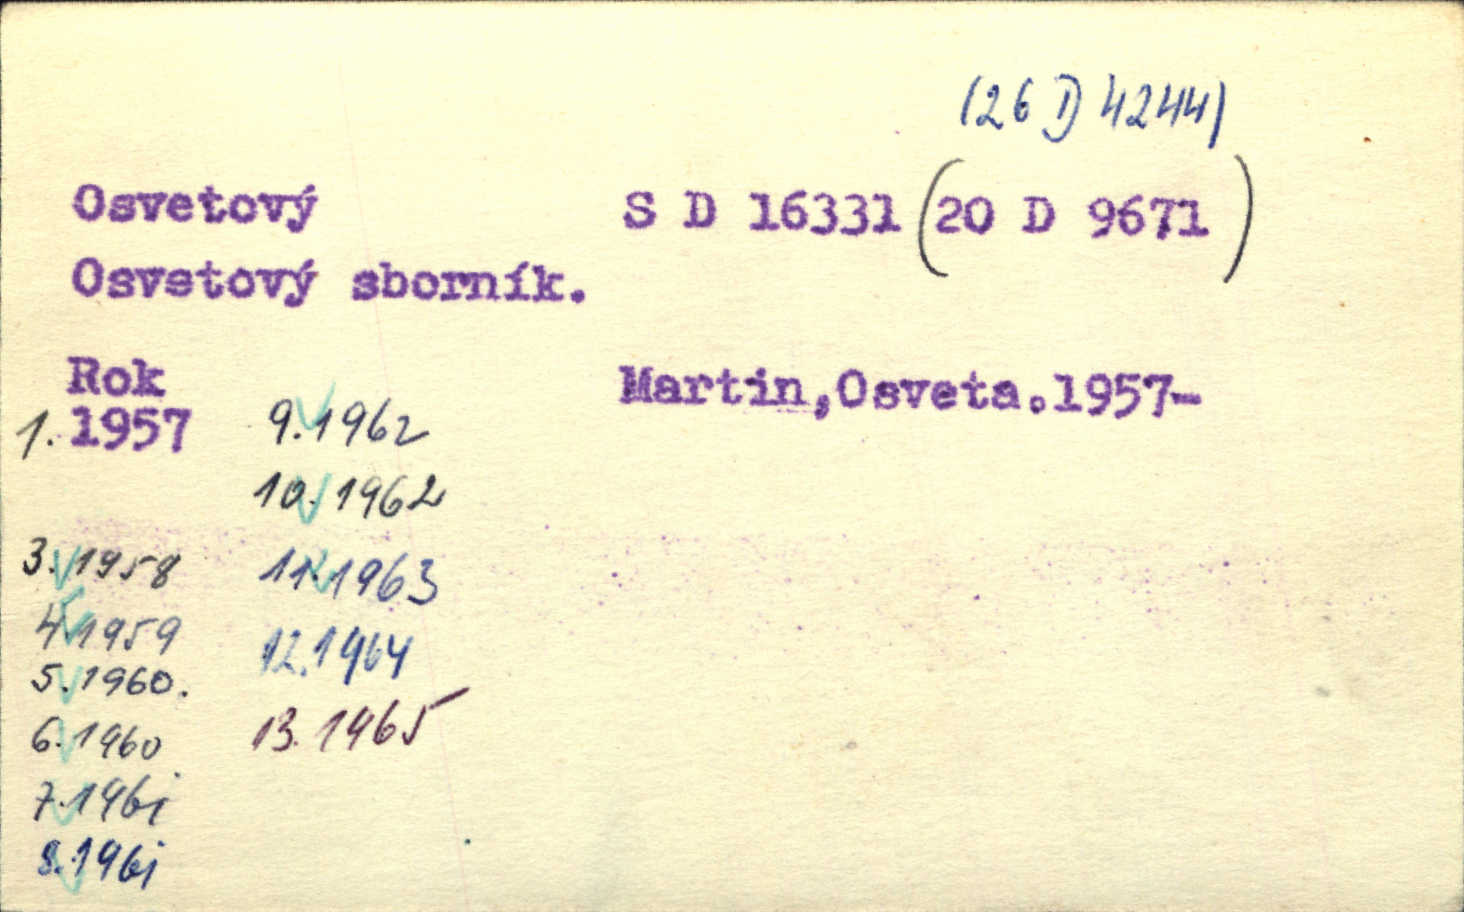 (26 D 4244)
Osvetový S D 16331 (20 D 9671)
Osvetový sborník.
Rok
Martin,Osveta.1957-
1. 1957
3. 1958
4. 1959
5. 1960.
6. 1960
7. 1961
8. 1961
9. 1962
10. 1962
11. 1963
12. 1964
13. 1965